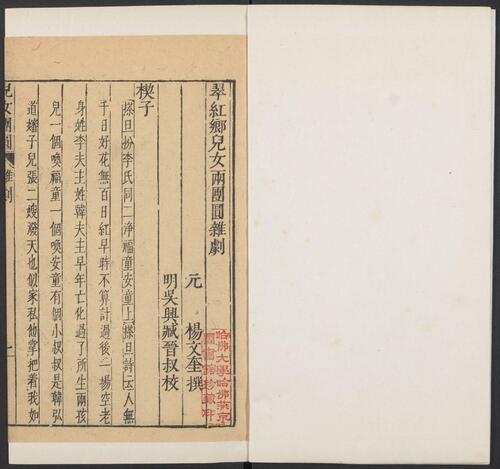 翠紅鄉兒女兩團圓雜劇
元 楊文奎撰
明吳興臧晉叔校
楔子
搽旦扮李氏同二淨福童安童上搽旦詩云人無
千日好花無百日紅早時不算計過後一場空老
身姓李夫主姓韓夫主早年亡化過了所生兩孩
兒一個喚福童一個喚安童有個小叔叔是韓弘
道嬸子兒張二嫂潑天也似家私他掌把着我如
兒女團圓
雜劇
一
哈佛大學哈佛燕京
圖書館珍藏印